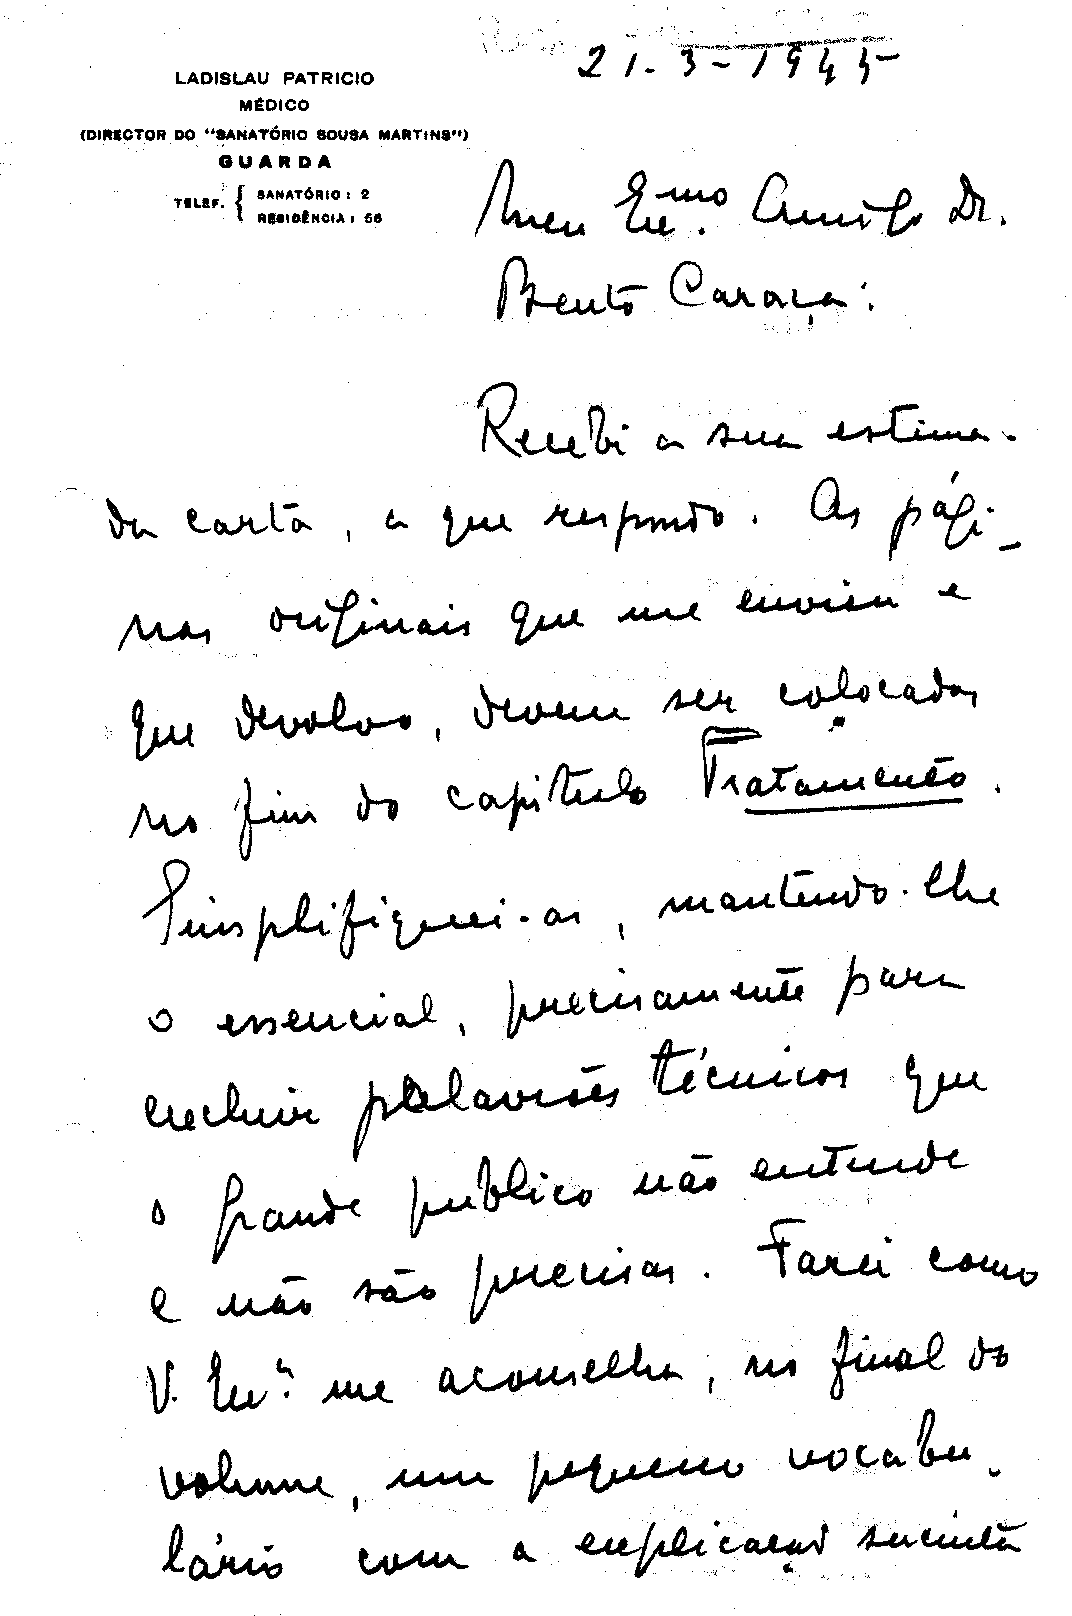 21-3-1945
LADISLAU PATRICIO
MÉDICO
(DIRECTOR DO "SANATÓRIO SOUSA MARTINS")
GUARDA
TELEF. { SANATÓRIO: 2
RESIDÊNCIA: 56
Meu Exmo. Amigo Dr.
Bento Caraça:
Recebi a sua estima-
da carta, a que respondo. As pági-
nas originais que me enviou e
que devolvo, devem ser colocadas
no fim do capítulo Tratamento.
Simplifiquei-as, mantendo-lhe
o essencial, precisamente para
excluir palavrões técnicos que
o grande publico não entende
e não são precisos. Farei como
V. Exª. me aconselha, no final do
volume, um pequeno vocabu-
lário com a explicação sucinta